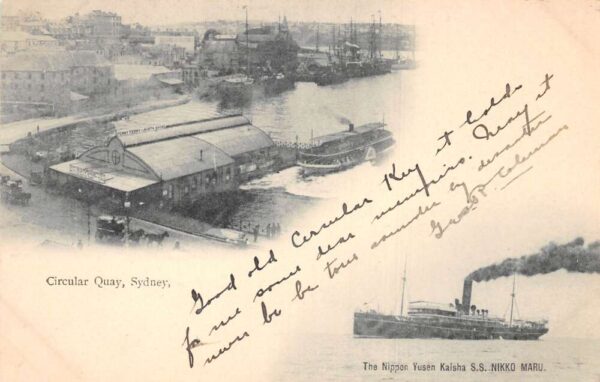 Circular Quay, Sydney,
Good old Circular Key it holds
for me some dear memoirs. May it
never be be torn asunder by disaster
Geo P Coleman
The Nippon Yusen Kaisha S.S. NIKKO MARU.